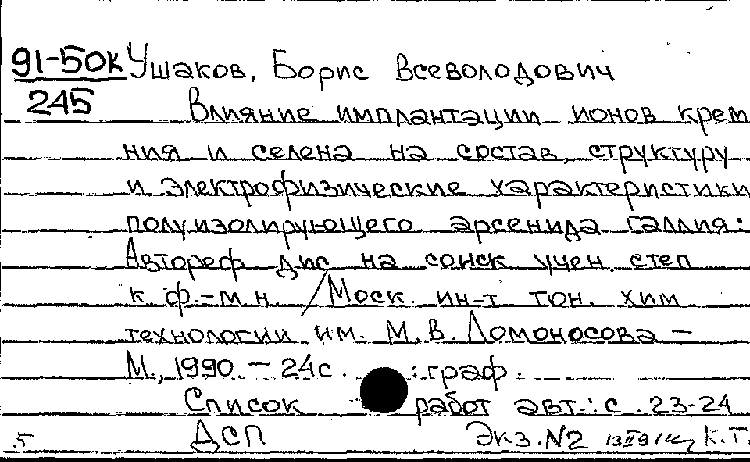 91-50к Ушаков, Борис Всеволодович
245 Влияние имплантации ионов крем
ния и селена на состав, структуру
и электрофизические характеристики
полуизолирующего арсенида галлия:
Автореф дис на соиск учен. степ
к. ф.-м. н. / Моск. ин-т тон. хим
технологии им. М. В. Ломоносова —
М., 1990. — 24с. : граф.
Список работ авт.: с. 23-24
5 ДСП Экз. N2 К.Т.